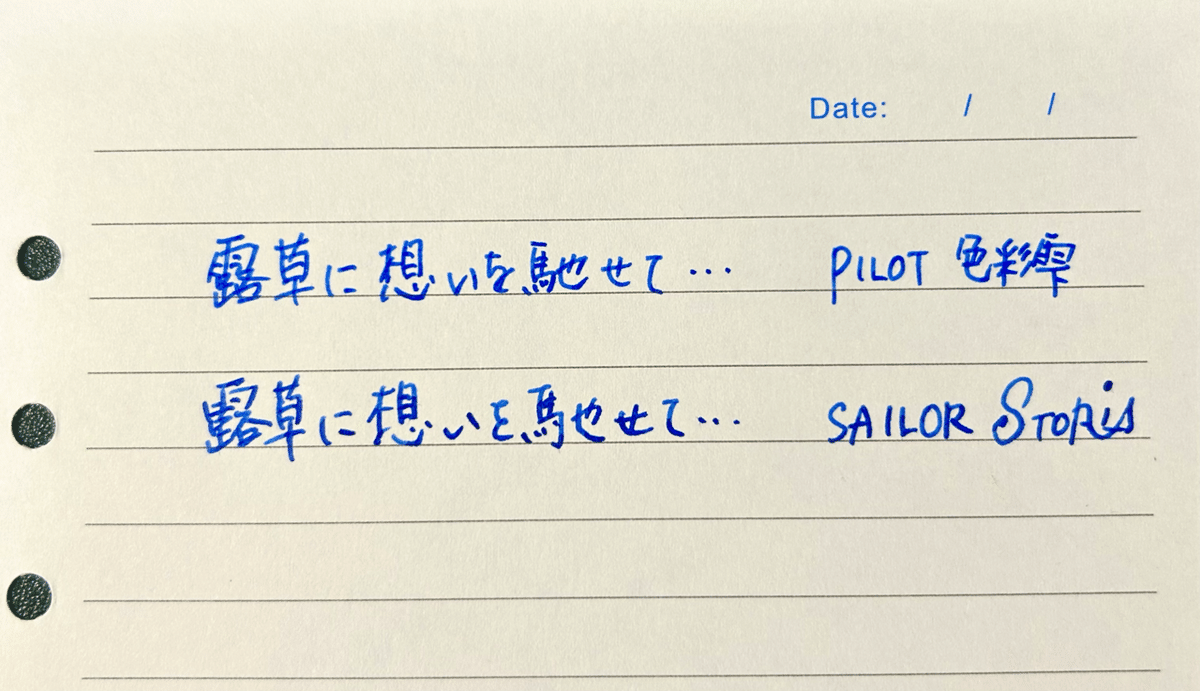 Date: / /
露草に想いを馳せて… PILOT 色彩雫
露草に想いを馳せて… SAILOR STORiS